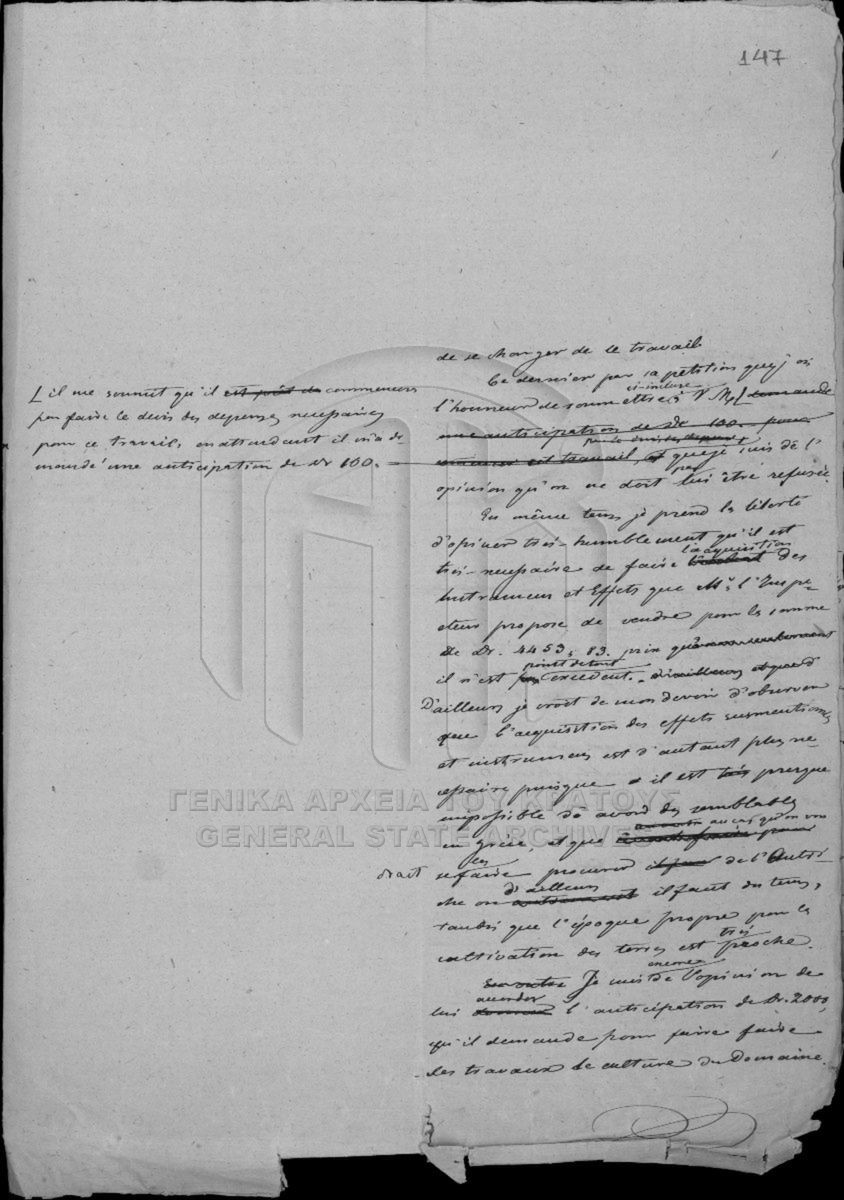 147
de se charger de ce travail
Ce dernier par sa pétition que j'ai
ci-incluse
l'honneur de soumettre à V. M. [ demande
une anticipation de Dr 100. pour
est travail, et que je suis de l'
opinion qu'on ne doit pas lui être refusée.
En même tems je prend la liberté
d'opiner très-humblement qu'il est
l'acquisition
très-necessaire de faire l'achat des
Instrumens et Effets que Mr. l'Inspe-
cteur propose de vendre pour la somme
de Dr. 4453, 83. prix
point du tout
il n'est pas excedent. d'ailleurs
D'ailleurs je croit de mon devoir d'observer
que l'acquisition des effets susmentionés
et instrumens est d'autant plus ne-
cessaire puisque il est très presque
impossible d'avoir des semblables
au cas qu'on vou
en Grèce, et que
drait les
se faire procurer de l'Autri-
d'ailleurs
che on il faut du tems,
tandis que l'époque propre pour la
très
cultivation des terres est proche.
encore
En outre Je suis de l'opinion de
accorder
lui donner l'anticipation de Dr. 2000,
qu'il demande pour faire faire
les travaux de culture du Domaine.
[ il me soumit qu'il est prêt de commencer
par faire le devis des depenses necessaires
pour ce travail, en attendant il m'a de-
mandé une anticipation de Dr 100.
ΓΕΝΙΚΑ ΑΡΧΕΙΑ ΤΟΥ ΚΡΑΤΟΥΣ
GENERAL STATE ARCHIVES